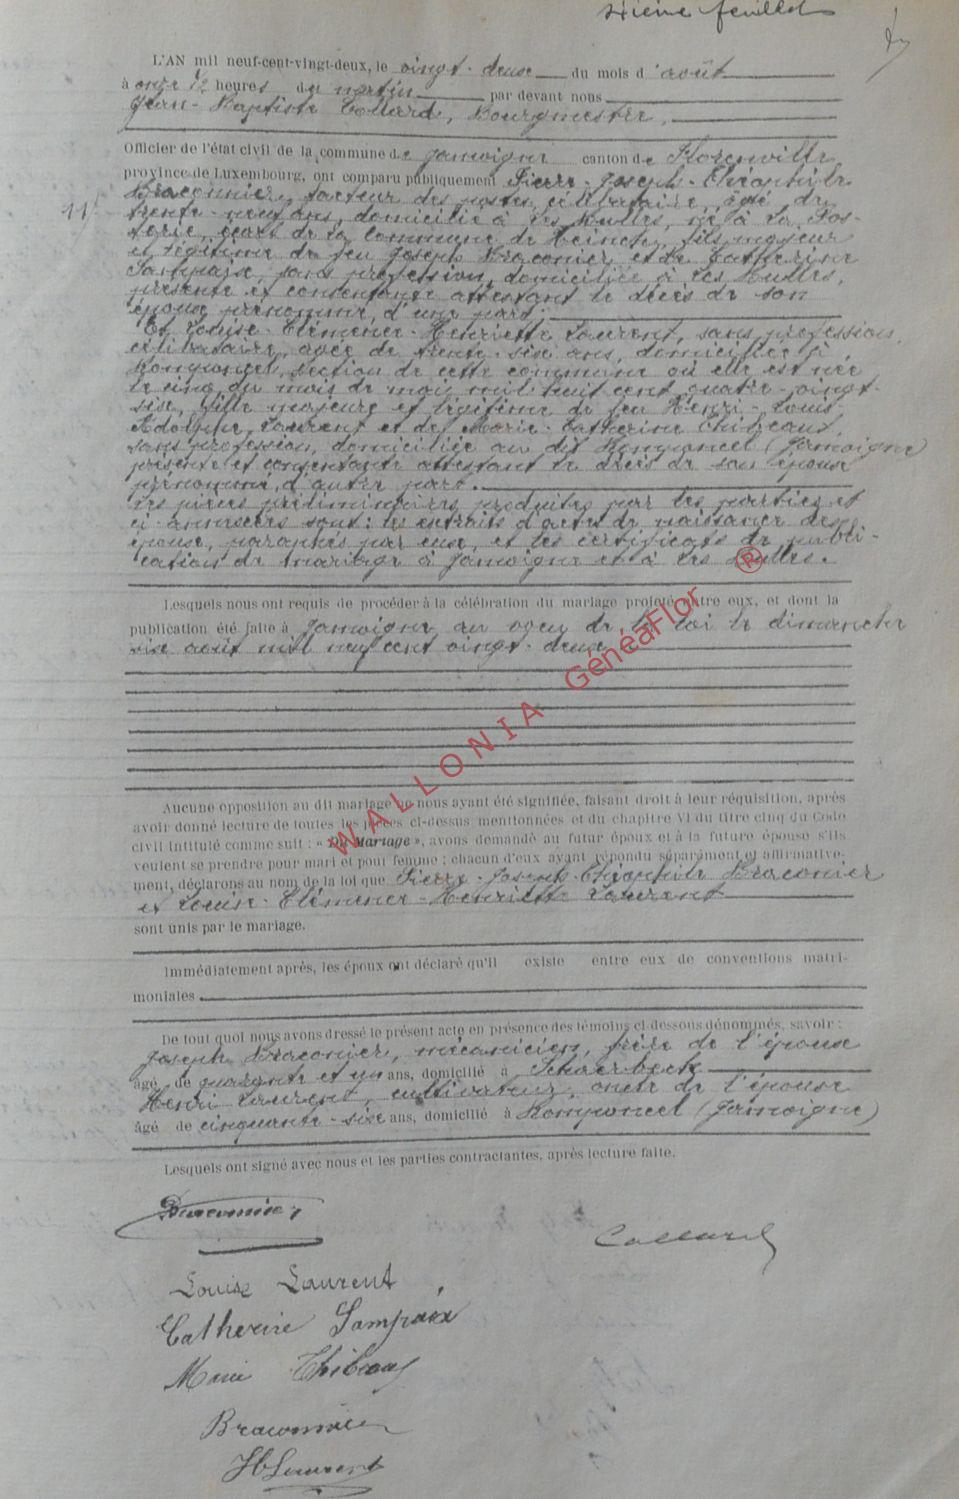 feuillet
L'AN mil neuf-cent-vingt-deux, le vingt-deux du mois d'août
à onze 1/2 heures du matin par devant nous
Jean-Baptiste Collard, Bourgmestre,
Officier de l'état civil de la commune de Jamoigne canton de Florenville
province de Luxembourg, ont comparu publiquement Pierre-Joseph-Théophile
11 Braconnier, facteur des postes, célibataire, âgé de
trente-neuf ans, domicilié à Les Bulles, né à La Fos-
serie, écart de la commune de Meinch, fils majeur
et légitime de feu Joseph Braconnier et de Catherine
Sampaix, sans profession, domiciliée à Les Bulles,
présente et consentante attestant le décès de son
époux prénommé, d'une part;
Et Louise-Clémence-Henriette Laurent, sans profession,
célibataire, agée de trente-six ans, domiciliée à
Romponcel, section de cette commune où elle est née
le cinq du mois de mai mil huit cent quatre-vingt-
six, fille majeure et légitime de feu Henri-Louis-
Adolphe Laurent et de Marie-Catherine Thibeaux,
sans profession, domiciliée au dit Romponcel (Jamoigne
présente et consentante attestant le décès de son époux
prénommé, d'autre part.
Les pièces préliminaires produites par les parties et
ci-annexées sont: les extraits d'actes de naissance des
époux, paraphés par eux, et les certificats de publi-
cation de mariage à Jamoigne et à Les Bulles.
Lesquels nous ont requis de procéder à la célébration du mariage projeté entre eux, et dont la
publication été faite à Jamoigne, au voeu de la loi le dimanche
six août mil neuf cent vingt-deux
Aucune opposition au dit mariage ne nous ayant été signifiée, faisant droit à leur réquisition, après
avoir donné lecture de toutes les pièces ci-dessus mentionnées et du chapitre VI du titre cinq du Code
civil intitulé comme suit : « Du Mariage », avons demandé au futur époux et à la future épouse s'ils
veulent se prendre pour mari et pour femme ; chacun d'eux ayant répondu séparément et affirmative-
ment, déclarons au nom de la loi que Pierre-Joseph-Théophile Braconnier
et Louise-Clémence-Henriette Laurent
sont unis par le mariage.
Immédiatement après, les époux ont déclaré qu'il existe entre eux de conventions matri-
moniales.
De tout quoi nous avons dressé le présent acte en présence des témoins ci-dessous dénommés, savoir :
Joseph Braconnier, mécanicien, frère de l'époux
âgé de quarante et un ans, domicilié à Schaerbeck
Henri Laurent, cultivateur, oncle de l'épouse
âgé de cinquante-six ans, domicilié à Romponcel (Jamoigne)
Lesquels ont signé avec nous et les parties contractantes, après lecture faite.
Braconnier
Collard
Louise Laurent
Catherine Sampaix
Marie Thibeaux
Braconnier
H Laurent
WALLONIA GénéaFlor ®